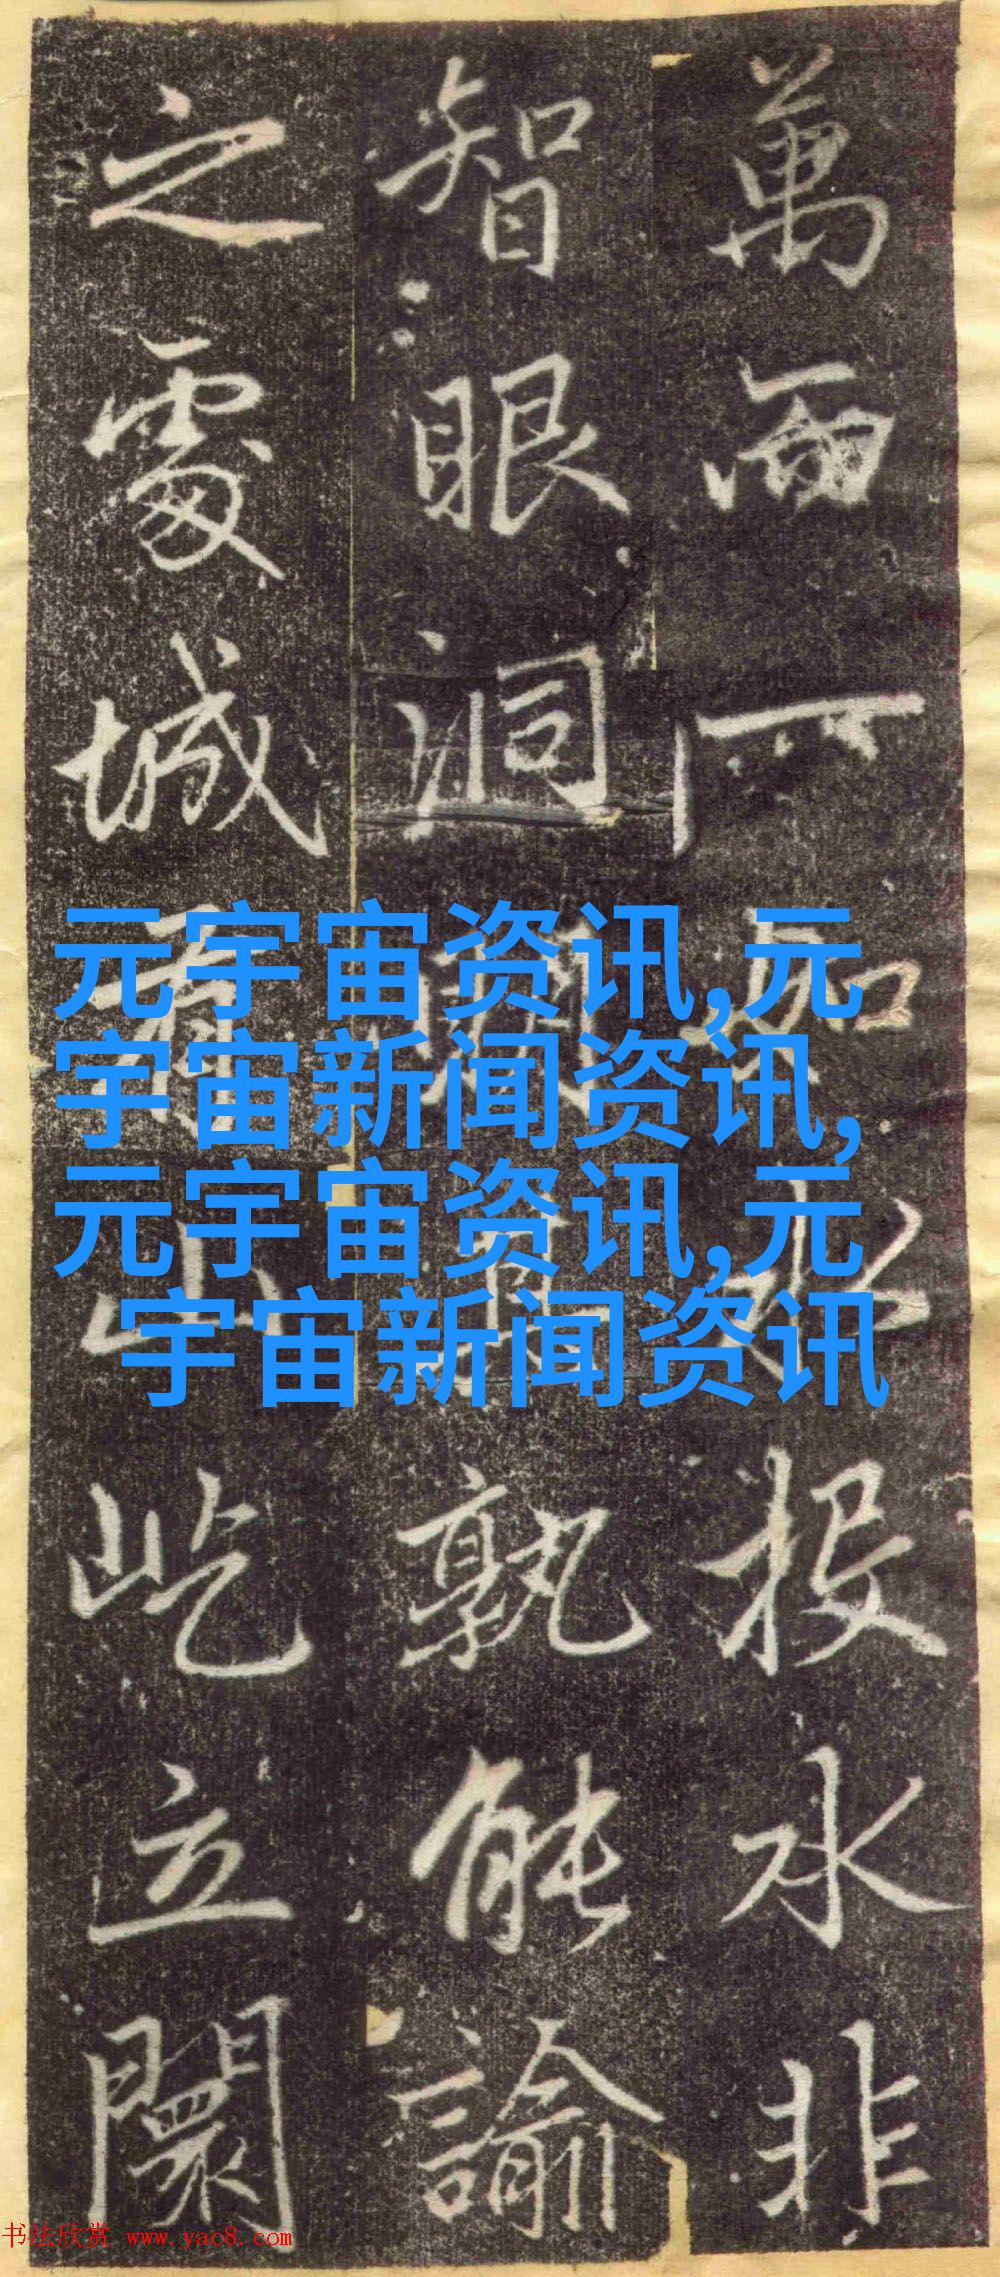 萬而一如水投水非
智眼洞孰能諭
之處城山屹立闤
元宇宙资讯,元
宇宙新闻资讯,
元宇宙资讯,元
宇宙新闻资讯
书法欣赏 www.yac8.com